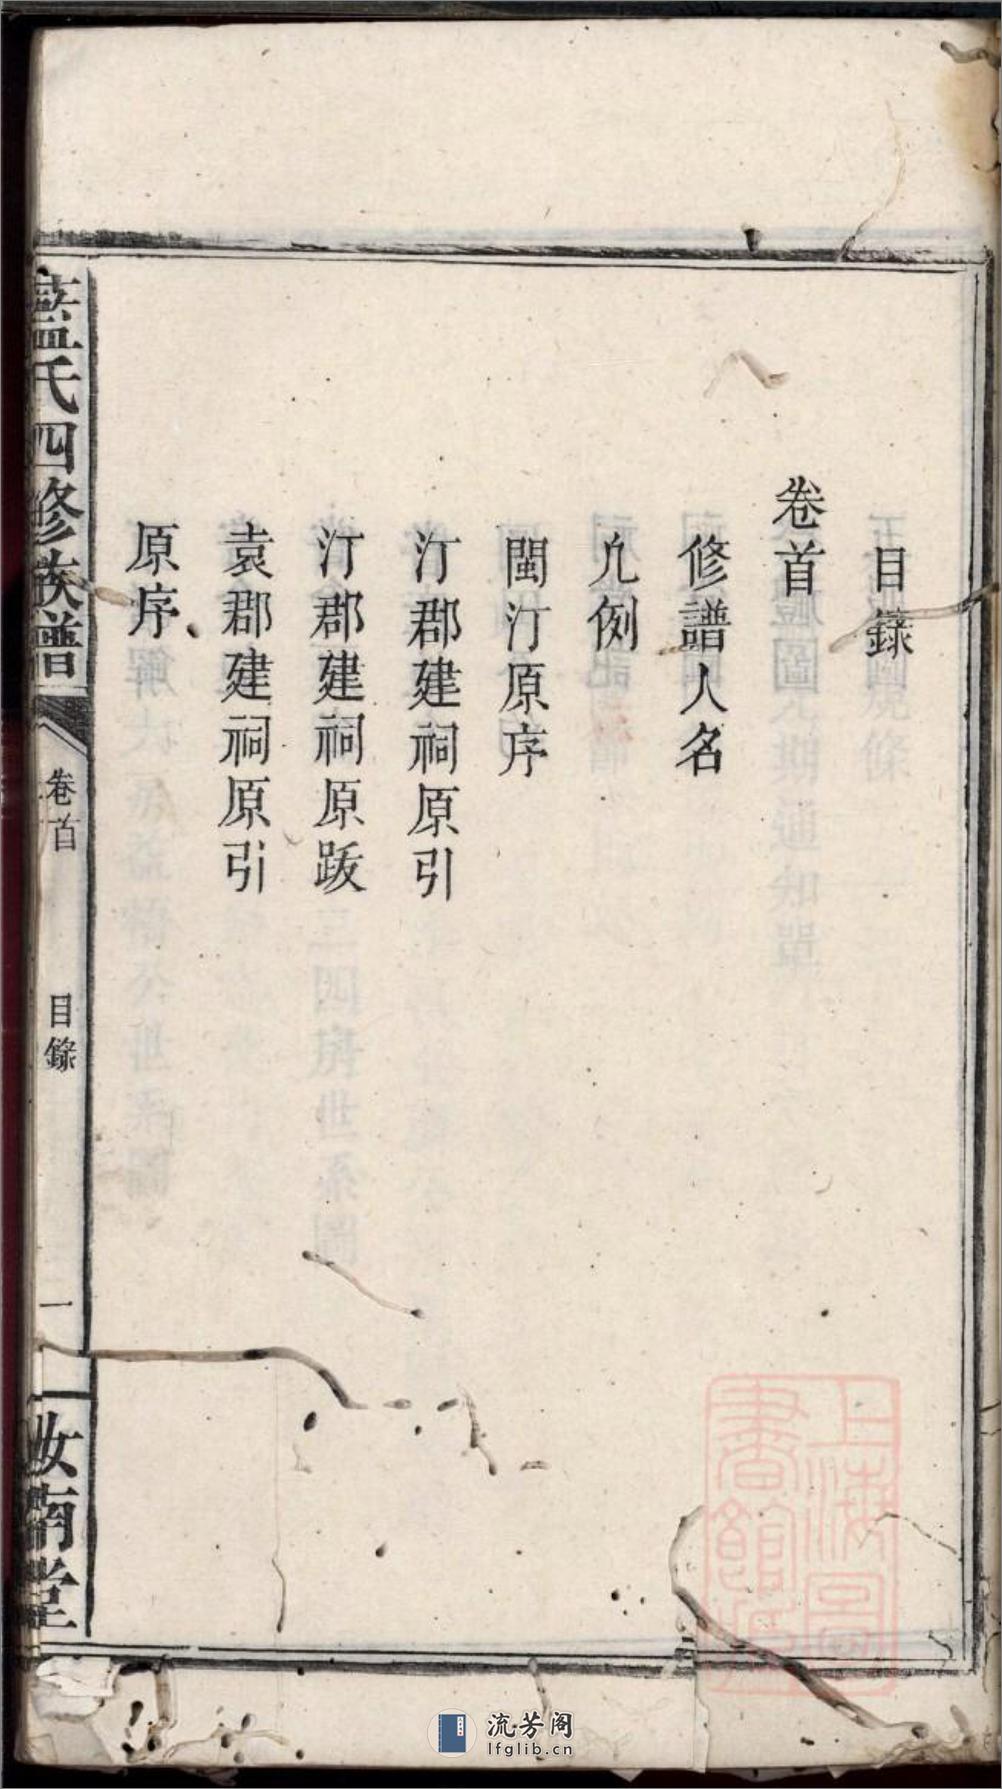 目錄
卷首
修譜人名
凡例
閩汀原序
汀郡建祠原引
汀郡建祠原跋
袁郡建祠原引
原序
藍氏四修族譜
卷首
目錄
一
汝南堂
上海圖書館藏
流芳阁
lfglib.cn